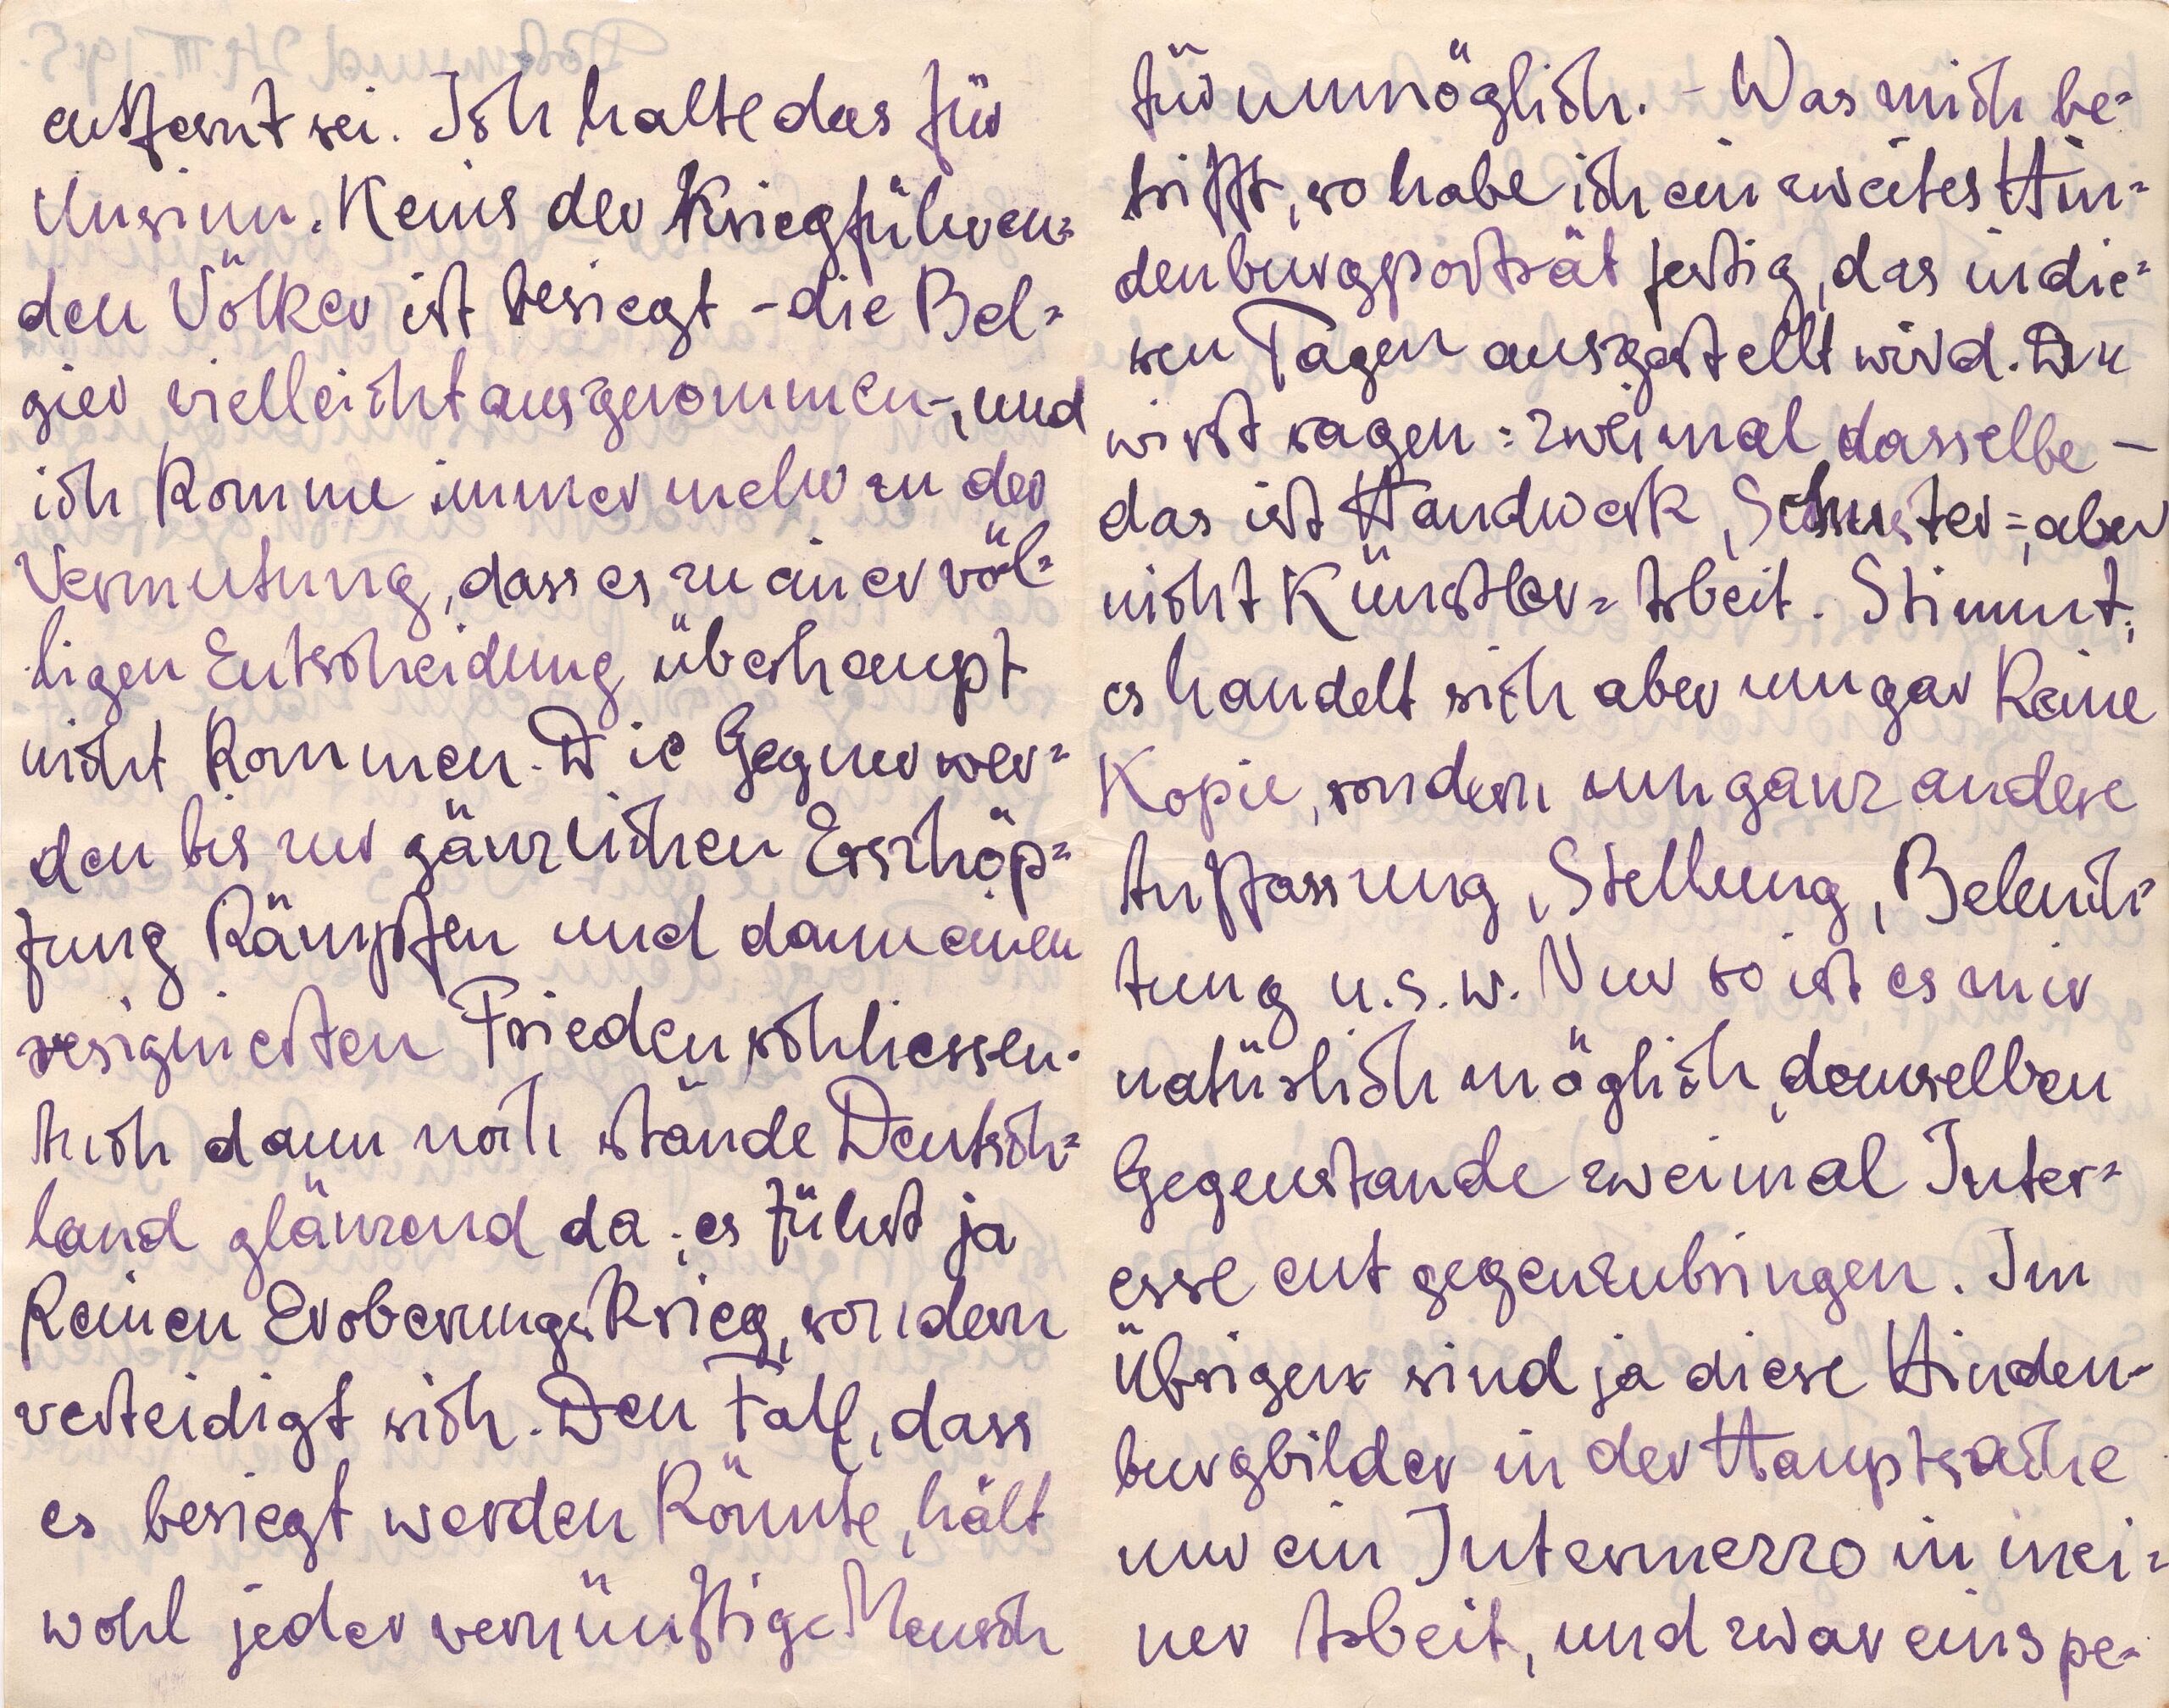 entfernt sei. Ich halte das für
Unsinn. Keins der Kriegführen=
den Völker ist besiegt - die Bel=
gier vielleicht ausgenommen -, und
ich komme immer mehr zu der
Vermutung, dass es zu einer völ=
ligen Entscheidung überhaupt
nicht kommen. Die Gegner wer=
den bis zur gänzlichen Erschöp=
fung kämpfen und dann einen
resignierten Frieden schliessen.
Auch dann noch stände Deutsch=
land glänzend da; es führt ja
keinen Eroberungskrieg, sondern
verteidigt sich. Den Fall, dass
es besiegt werden könnte, hält
wohl jeder vernünftige Mensch
für unmöglich. - Was mich be=
trifft, so habe ich ein zweites Hin=
denburgporträt fertig, das in die=
sen Tagen ausgestellt wird. Du
wirst sagen: zweimal dasselbe -
das ist Handwerk, Schuster=, aber
nicht Künstler=Arbeit. Stimmt;
es handelt sich aber um gar keine
Kopie, sondern um ganz andere
Auffassung, Stellung, Beleuch=
tung u.s.w. Nur so ist es mir
natürlich möglich, demselben
Gegenstande zweimal Inter=
esse entgegenzubringen. Im
Übrigen sind ja diese Hinden=
burgbilder in der Hauptsache
nur ein Intermezzo in mei=
ner Arbeit, und zwar eins pe=